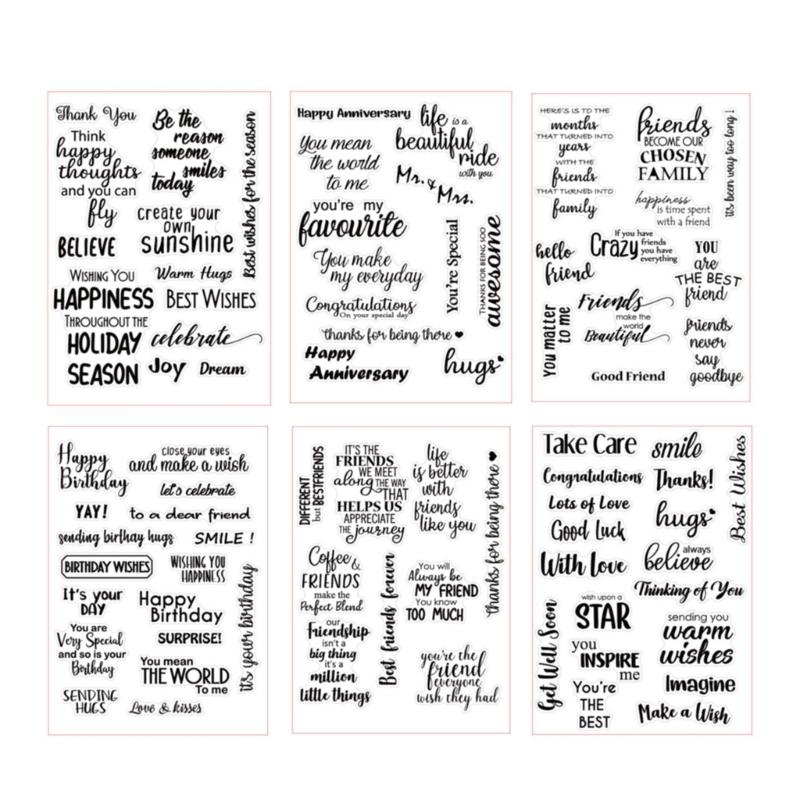 Thank You
Think
happy
thoughts
and you can
fly
Be the
reason
someone
smiles
today
create your
own
sunshine
BELIEVE
WISHING YOU
HAPPINESS
THROUGHOUT THE
HOLIDAY
SEASON
Warm Hugs
BEST WISHES
celebrate
Joy
Dream
Best wishes for the season
Happy Anniversary
life is a
beautiful
ride
with you
You mean
the world
to me
Mr. &
Mrs.
you're my
favourite
You make
my everyday
Congratulations
On your special day
You're Special
THANKS FOR BEING SOO
awesome
thanks for being there
Happy
Anniversary
hugs
HERE'S IS TO THE
months
THAT TURNED INTO
years
WITH THE
friends
THAT TURNED INTO
family
friends
BECOME OUR
CHOSEN
FAMILY
its been way too long !
happiness
is time spent
with a friend
hello
friend
If you have
Crazy friends
you have
everything
YOU
are
THE BEST
friend
You matter
to me
Friends
make the
world
Beautiful
friends
never
say
goodbye
Good Friend
Happy
Birthday
close your eyes
and make a wish
let's celebrate
YAY!
to a dear friend
sending birthay hugs
SMILE !
BIRTHDAY WISHES
WISHING YOU
HAPPINESS
It's your
DAY
Happy
Birthday
You are
Very Special
and so is your
Birthday
SURPRISE!
You mean
THE WORLD
To me
it's your birthday
SENDING
HUGS
Love & kisses
DIFFERENT
but BESTFRIENDS
IT'S THE
FRIENDS
WE MEET
along THE WAY
THAT
HELPS US
APPRECIATE
THE journey
life
is better
with
friends
like you
thanks for being there
Coffee
&
FRIENDS
make the
Perfect Blend
Best friends forever
You will
Always be
MY FRIEND
You know
TOO MUCH
our
Friendship
isn't a
big thing
it's a
million
little things
you're the
friend
everyone
wish they had
Take Care
smile
Best Wishes
Congratulations
Thanks!
Lots of Love
hugs
Good Luck
With Love
always
believe
Thinking of You
Get Well Soon
wish upon a
STAR
sending you
warm
wishes
you
INSPIRE
me
Imagine
You're
THE
BEST
Make a Wish